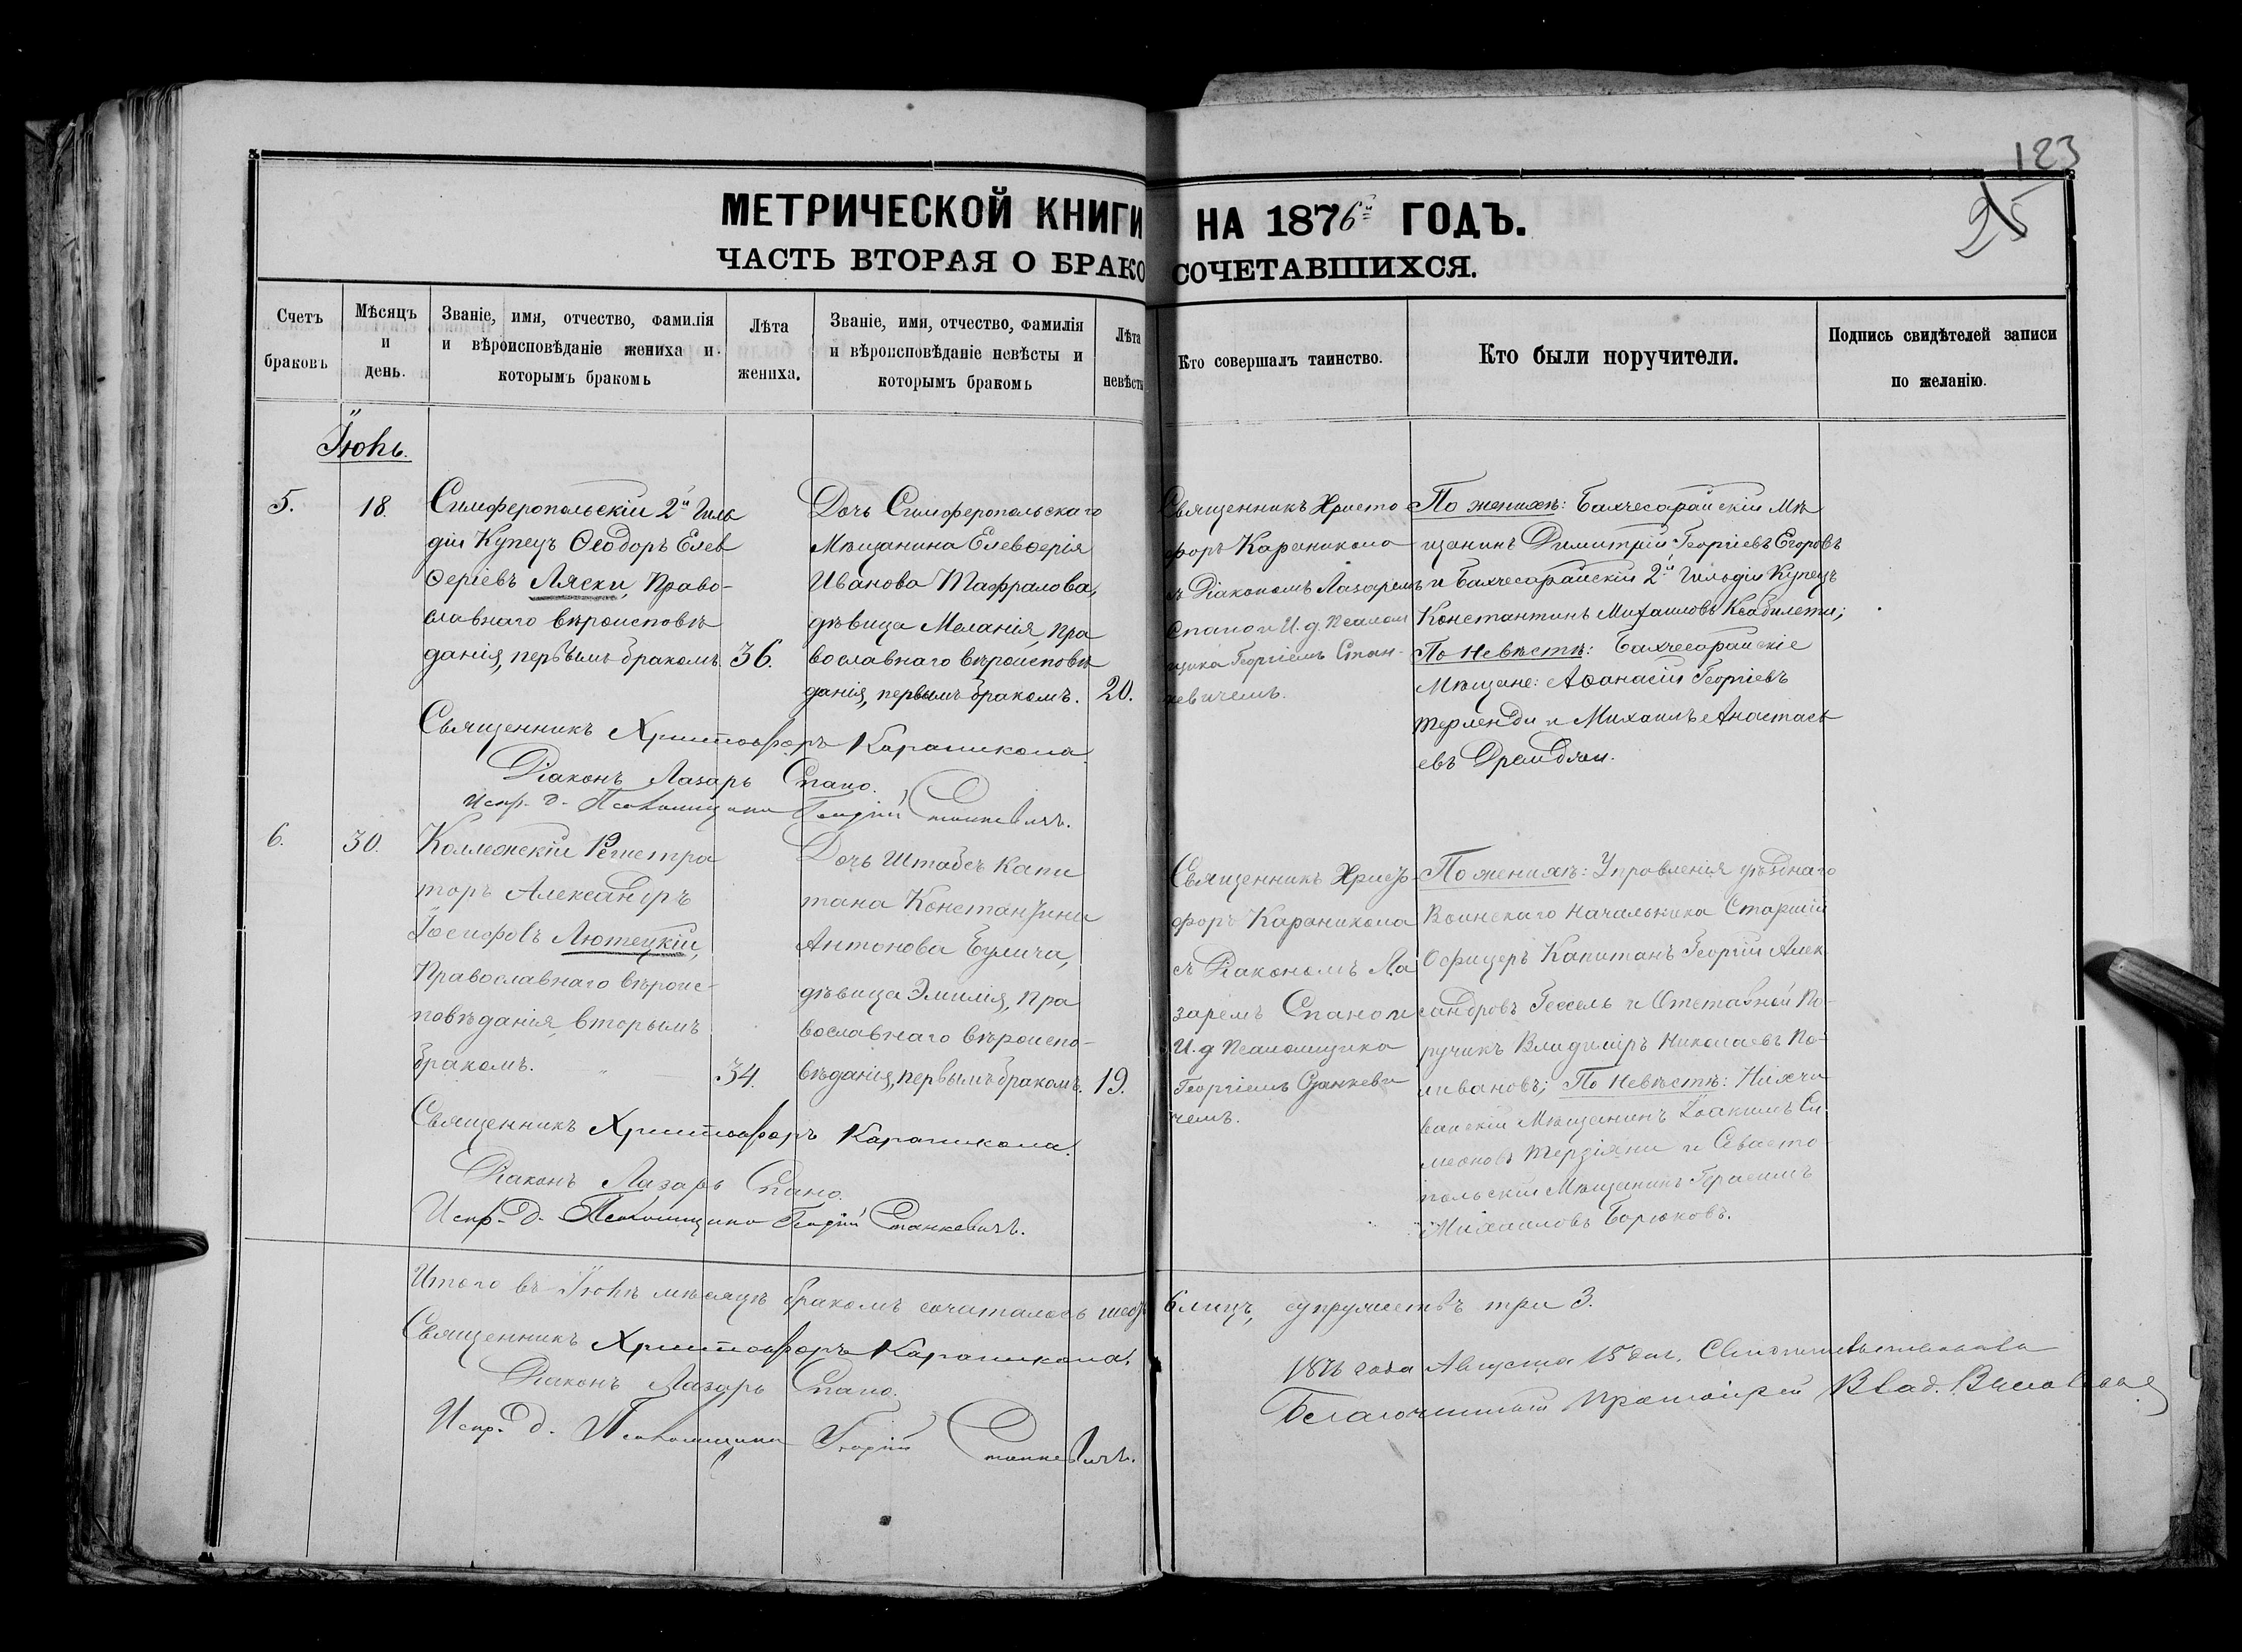 123
25
МЕТРИЧЕСКОЙ КНИГИ НА 1876й ГОДЪ.
ЧАСТЬ ВТОРАЯ О БРАКОСОЧЕТАВШИХСЯ.
Счетъ браковъ
Мѣсяцъ и день.
Званіе, имя, отчество, фамилія
и вѣроисповѣданіе жениха и
которымъ бракомъ
Лѣта жениха.
Званіе, имя, отчество, фамилія
и вѣроисповѣданіе невѣсты и
которымъ бракомъ
Лѣта невѣсты
Кто совершалъ таинство.
Кто были поручители.
Подпись свидѣтелей записи
по желанію.
Іюнь.
5.
18.
Симферопольскій 2й Гиль
діи Купецъ Ѳеодоръ Елев
ѳеріевъ Ляски, Право-
славнаго вѣроисповѣ
данія, первымъ бракомъ.
36.
Дочь Симферопольскаго
Мѣщанина Елевѳерія
Иванова Тафралова,
дѣвица Меланія, Пра
вославнаго вѣроисповѣ
данія, первымъ бракомъ.
20.
Священникъ Христо
форъ Караникола
съ Діакономъ Лазаремъ
Спано и И. д. Псалом
щика Георгіемъ Стан-
кевичемъ.
По женихѣ: Бахчесарайскій Мѣ
щанинъ Димитрій Георгіевъ Егоровъ
и Бахчесарайскій 2й Гильдіи Купецъ
Константинъ Михаиловъ
По Невѣстѣ: Бахчесарайскіе
Мѣщане: Аѳанасій Георгіевъ
Терленди и Михаилъ Анастась
евъ
Священникъ Христофоръ Караникола.
Діаконъ Лазарь Спано.
Испр. д. Псаломщика Георгій Станкевичъ.
6.
30.
Коллежскій Регистра
торъ Александръ
Іосифовъ Лютецкій,
Православнаго вѣроис-
повѣданія, вторымъ
бракомъ.
34.
Дочь Штабсъ Капи
тана Константина
Антонова Булича,
дѣвица Эмилія, Пра
вославнаго вѣроиспо-
вѣданія, первымъ бракомъ.
19.
Священникъ Христо-
форъ Караникола
съ Діакономъ Ла
заремъ Спано и
И. д Псаломщика
Георгіемъ Станкеви
чемъ.
По женихѣ: Управленія уѣзднаго
Воинскаго Начальника Старшій
Офицеръ Капитанъ Георгій Алек
сандровъ Гессель и Отставной По-
ручикъ Владиміръ Николаевъ По-
ливановъ; По Невѣстѣ: Нахичи
ванскій Мѣщанинъ Іоакимъ Си
меоновъ Терзіяни и Севасто
польскій Мѣщанинъ Герасимъ
Михаиловъ Борюковъ.
Священникъ Христофоръ Караникола.
Діаконъ Лазарь Спано.
Испр. д. Псаломщика Георгій Станкевичъ.
Итого въ Іюнѣ мѣсяцѣ бракомъ сочиталось 6 лицъ, супружествъ три 3.
Священникъ Христофоръ Караникола.
Діаконъ Лазарь Спано.
Испр. д. Псаломщика Георгій Станкевичъ.
1876 года Августа 15 дня.
Благочинный Протоіерей Влад.